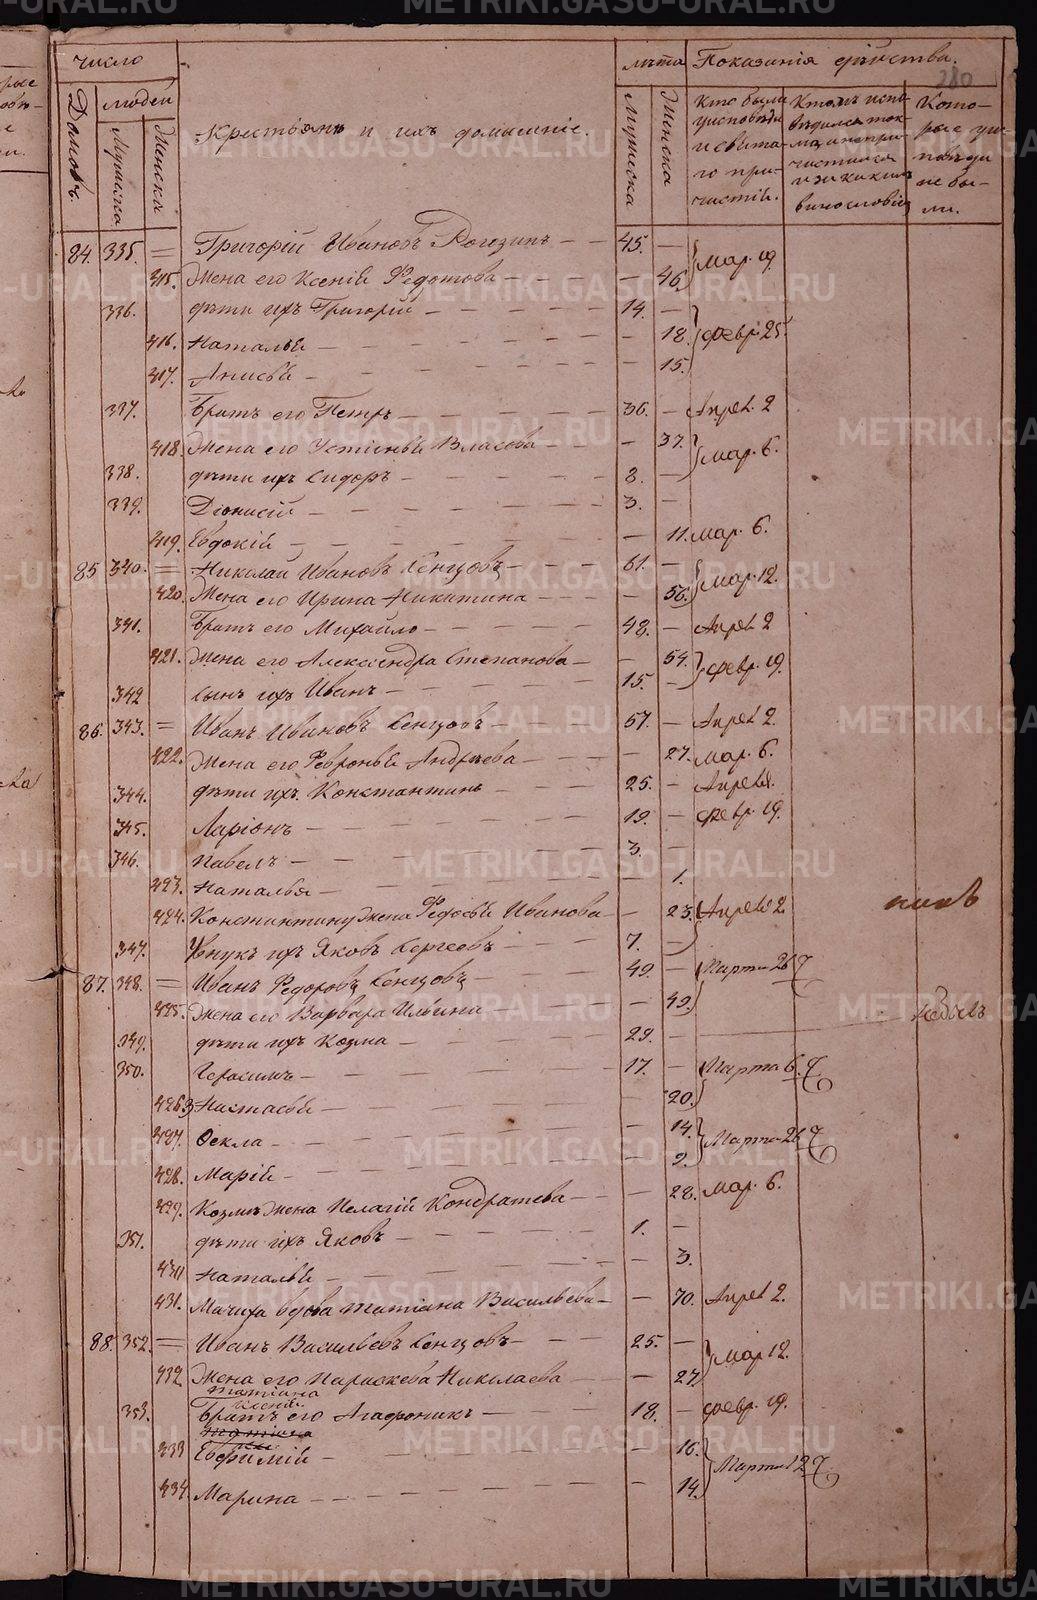 число
лѣта Показанія дѣйства.
280
Домовъ.
людей
Мужеска
Женска
Крестьянъ и ихъ домашніе.
Мужеска
Женска
Кто были у исповѣди и святаго причастія.
Кто исповѣдался токмо, а не причастился и за какимъ винословіемъ
Которые у исповѣди не были.
84. 335. = Григорій Ивановъ Рогозинъ — — 45. —
415. Жена его Ксенія Федотова — — — 46. Мар. 19.
336. дѣти ихъ Григорій — — 14. —
416. Наталья — — 18. Февр. 25.
417. Анисья — — 15.
337. Братъ его Петръ — — 36. — Апрел. 2
418. Жена его Устинья Власова — — 37. Мар. 6.
338. дѣти ихъ Сидоръ — — 8. —
339. Діонисій — — 3. —
419. Евдокія — — 11. мар. 6.
85 340. = Николай Ивановъ Сенцовъ — — 61. —
420. Жена его Ирина Никитина — — 56. Мар. 12.
341. Братъ его Михайло — — 48. — Апрел 2
421. Жена его Александра Степанова — — 54. Февр. 19.
342 сынъ ихъ Иванъ — — 15. —
86. 343. = Иванъ Ивановъ Сенцовъ — — 57. — Апрел 2.
422. Жена его Февронья Андреева — — 27. Мар. 6.
344. дѣти ихъ Константинъ — — 25. — Апрел
345. Ларіонъ — — 19. — Февр. 19.
346. Павелъ — — 3. —
423. Наталья — — 1.
424. Константину жена Федосья Иванова — — 23. Апрел 2
347. Внукъ ихъ Яковъ Сергеевъ — — 7. —
87. 348. = Иванъ Федоровъ Сенцовъ — — 49. — Марта 26
425. Жена его Варвара Ильина — — 49. не былъ
349. дѣти ихъ Козма — — 29. —
350. Герасимъ — — 17. — Марта 6.
426 Настасья — — 20.
427. Фекла — — 14. Марта 26
428. Марія — — 9.
429. Козмѣ жена Пелагія Кондратева — — 28. Мар. 6.
351. дѣти ихъ Яковъ — — 1. —
430 Наталья — — 3.
431. Мачиха вдова Татіана Васильева — — 70. Апрел 2.
88. 352. = Иванъ Васильевъ Сенцовъ — — 25. —
432 Жена его Параскева Николаева — — 27. Мар 12.
татіана
353. Братъ его Агафоникъ — — 18. — Февр. 19.
433 Евфимія — — 16. Марта 12
434 Марина — — 14.
METRIKI.GASO-URAL.RU